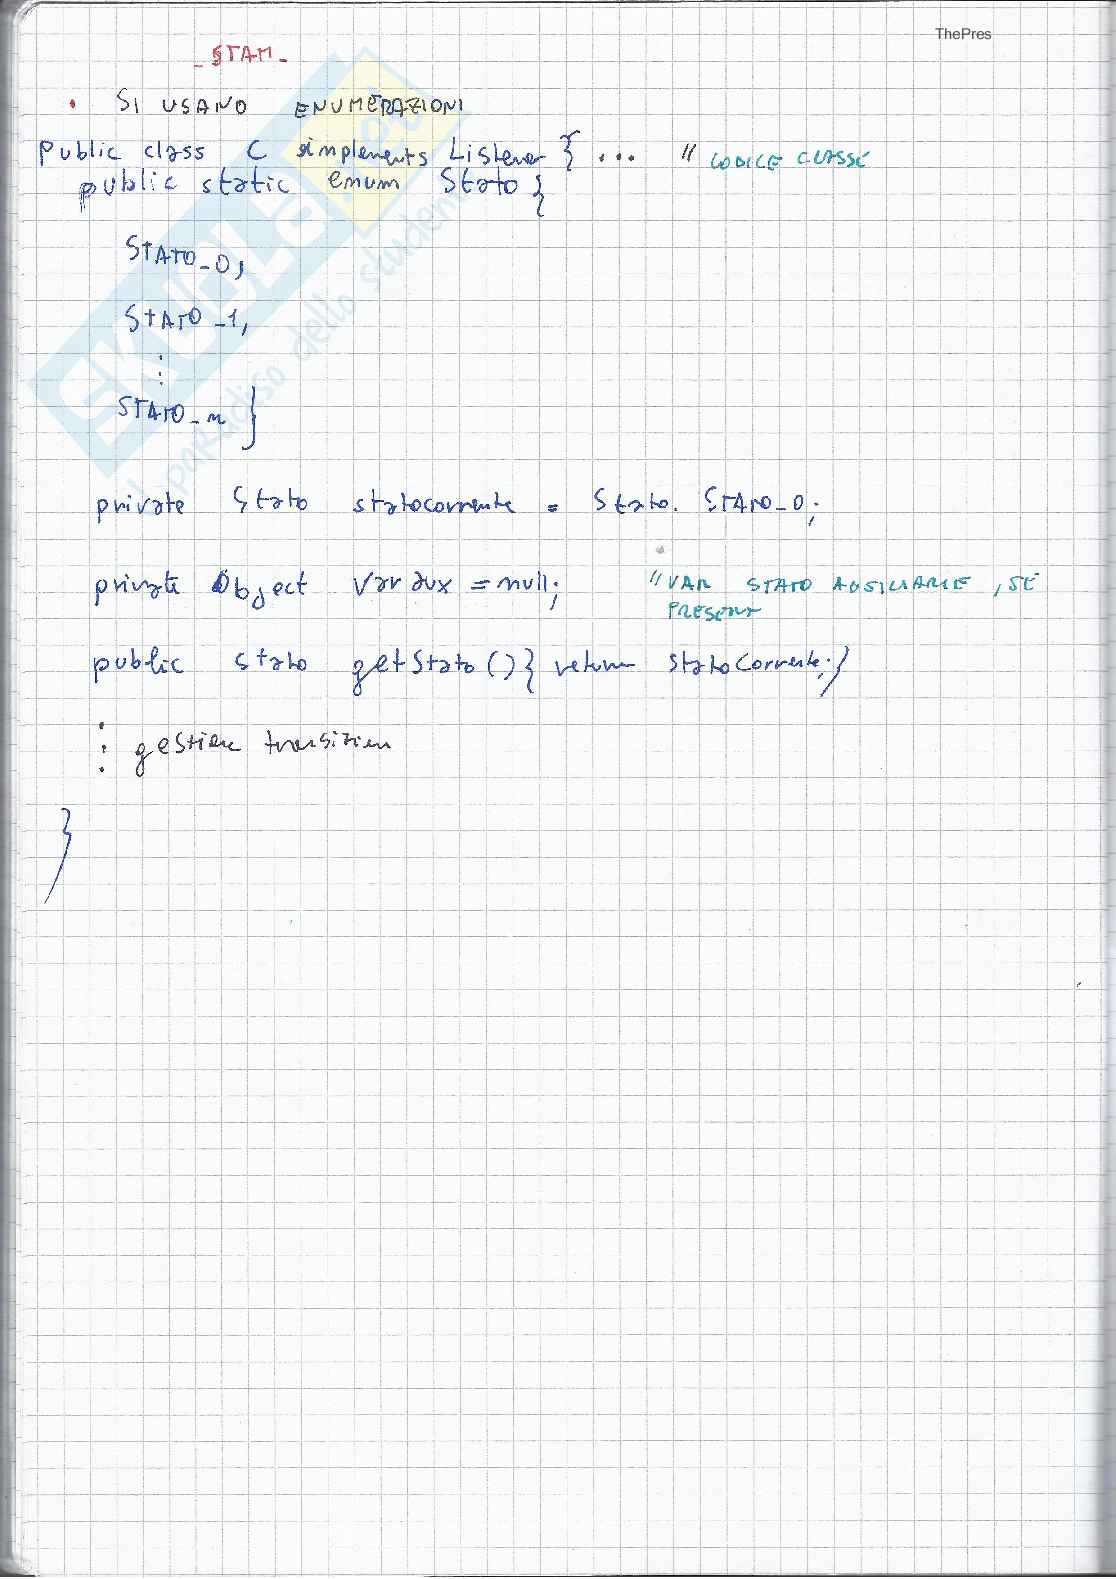 ThePres
- STATI -
• SI USANO ENUMERAZIONI
public class C implements Listener { ... // CODICE CLASSE
public static enum Stato {
STATO_0,
STATO_1,
:
STATO_n }
private Stato statocorrente = Stato. STATO_0;
private Object varaux = null; // VAR STATO AUSILIARIE, SE
PRESENTI
public stato getStato() { return statoCorrente; }
: gestione transizioni
}
SKUOLA.net
il paradiso dello studente